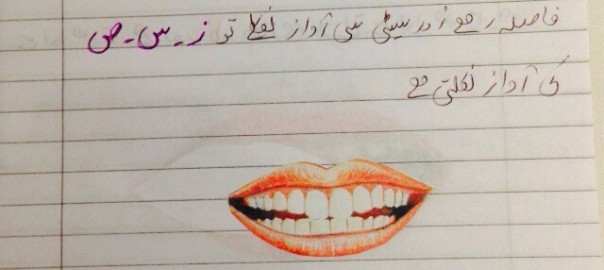 فاصلہ رہے اور سیٹی سی آواز نکلے تو ز ۔ س ۔ ص
کی آواز نکلتی ہے